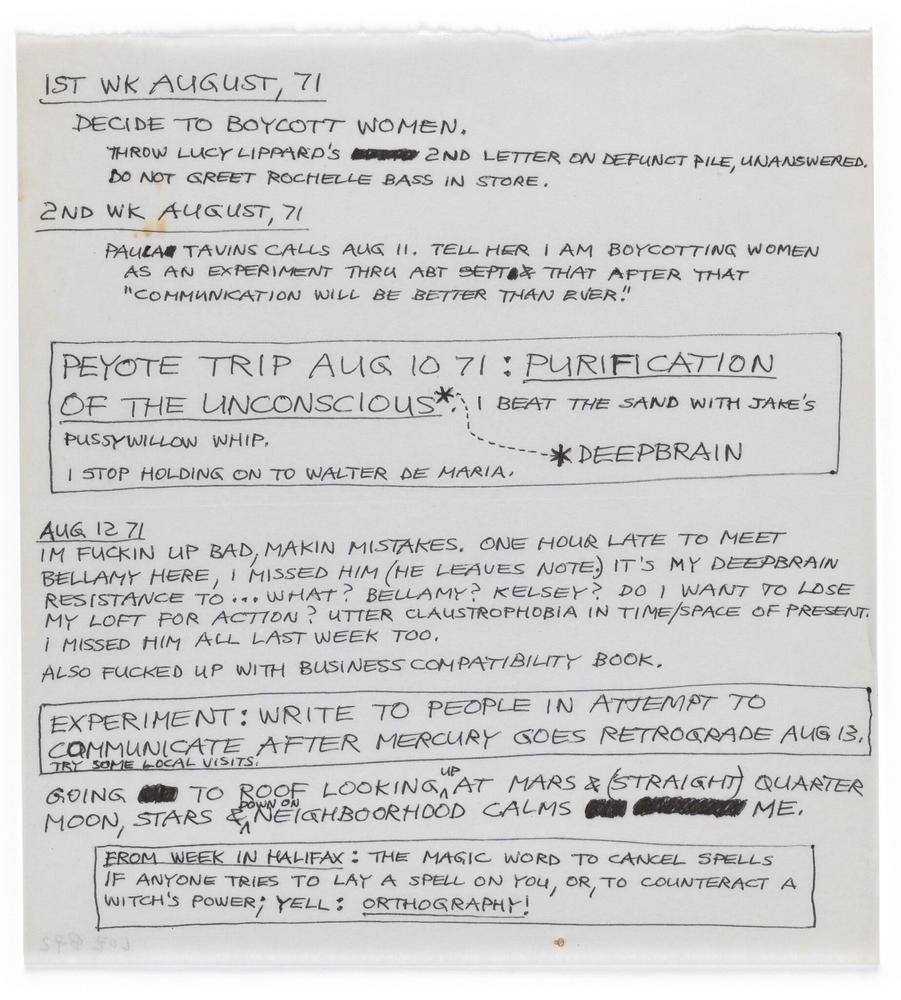 1ST WK AUGUST, 71
DECIDE TO BOYCOTT WOMEN.
THROW LUCY LIPPARD'S 2ND LETTER ON DEFUNCT PILE, UNANSWERED.
DO NOT GREET ROCHELLE BASS IN STORE.
2ND WK AUGUST, 71
PAULA TAVINS CALLS AUG 11. TELL HER I AM BOYCOTTING WOMEN
AS AN EXPERIMENT THRU ABT SEPT & THAT AFTER THAT
"COMMUNICATION WILL BE BETTER THAN EVER."
PEYOTE TRIP AUG 10 71 : PURIFICATION
OF THE UNCONSCIOUS*. I BEAT THE SAND WITH JAKE'S
PUSSYWILLOW WHIP.
* DEEPBRAIN
I STOP HOLDING ON TO WALTER DE MARIA.
AUG 12 71
IM FUCKIN UP BAD, MAKIN MISTAKES. ONE HOUR LATE TO MEET
BELLAMY HERE, I MISSED HIM (HE LEAVES NOTE.) IT'S MY DEEPBRAIN
RESISTANCE TO ... WHAT? BELLAMY? KELSEY? DO I WANT TO LOSE
MY LOFT FOR ACTION? UTTER CLAUSTROPHOBIA IN TIME/SPACE OF PRESENT.
I MISSED HIM ALL LAST WEEK TOO.
ALSO FUCKED UP WITH BUSINESS COMPATIBILITY BOOK.
EXPERIMENT: WRITE TO PEOPLE IN ATTEMPT TO
COMMUNICATE AFTER MERCURY GOES RETROGRADE AUG 13.
TRY SOME LOCAL VISITS.
GOING TO ROOF LOOKING UP AT MARS & (STRAIGHT) QUARTER
MOON, STARS & DOWN ON NEIGHBOORHOOD CALMS ME.
FROM WEEK IN HALIFAX : THE MAGIC WORD TO CANCEL SPELLS
IF ANYONE TRIES TO LAY A SPELL ON YOU, OR, TO COUNTERACT A
WITCH'S POWER; YELL : ORTHOGRAPHY!